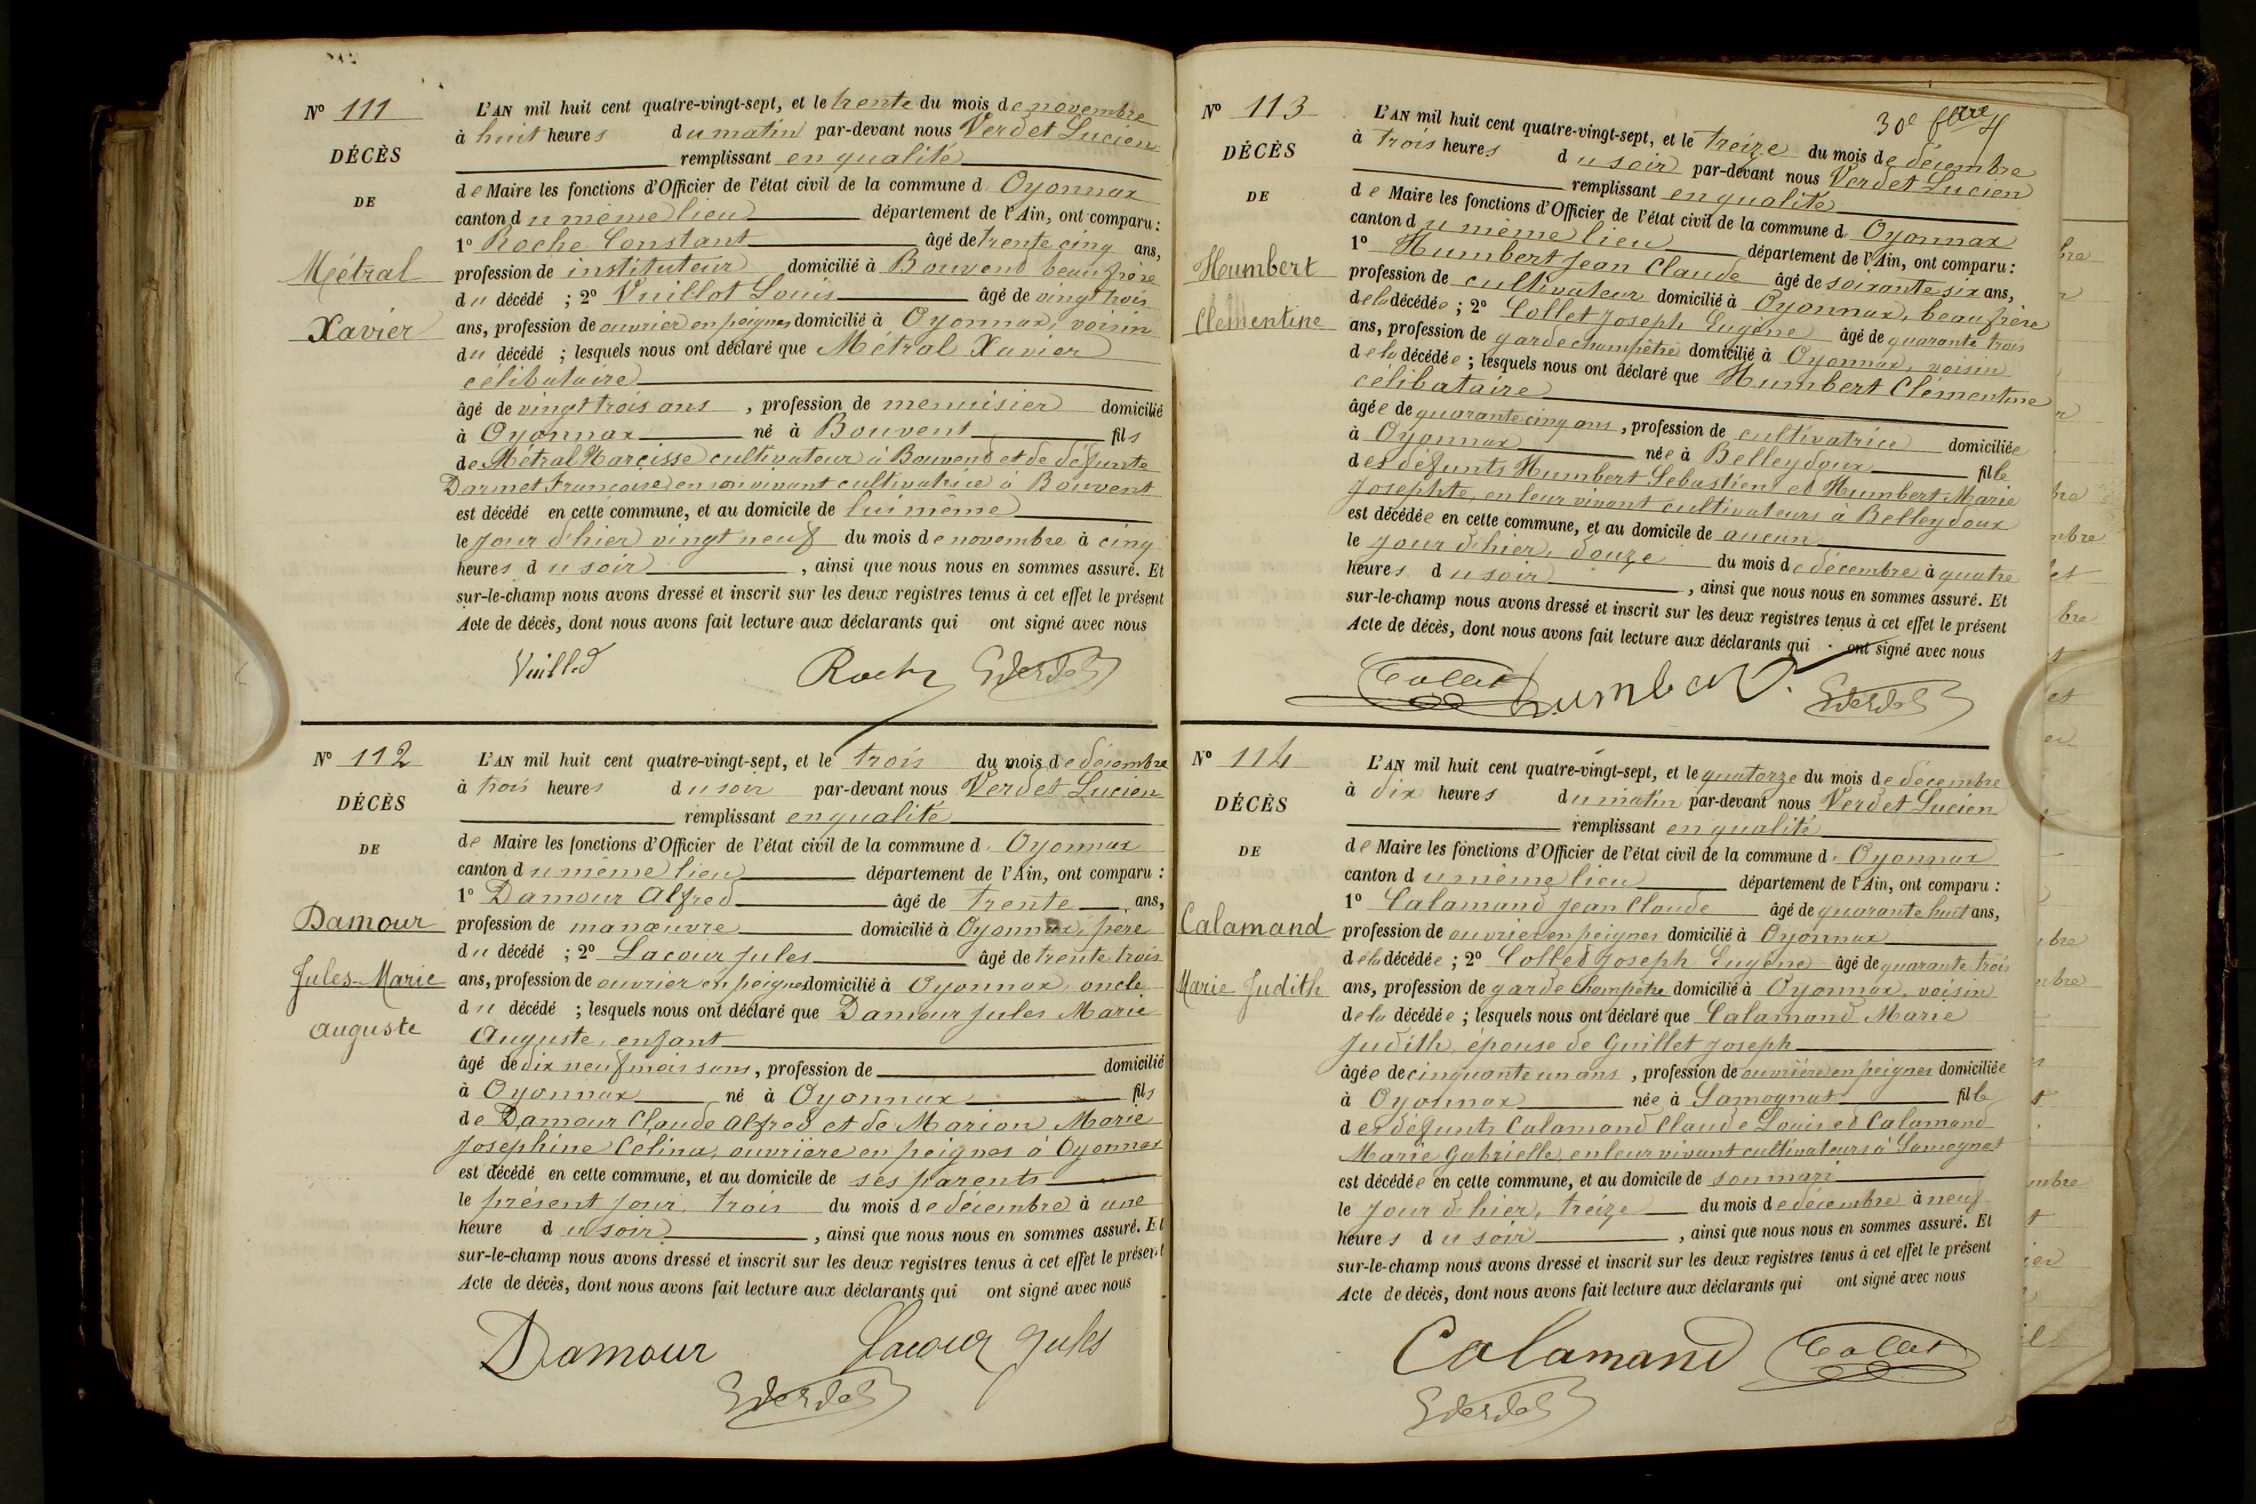 N° 111
DÉCÈS
DE
Métral
Xavier
L'AN mil huit cent quatre-vingt-sept, et le trente du mois de novembre
à huit heures du matin par-devant nous Verdet Lucien
remplissant en qualité
de Maire les fonctions d'Officier de l'état civil de la commune d' Oyonnax
canton du même lieu département de l'Ain, ont comparu :
1° Roche Constant âgé de trente cinq ans,
profession de instituteur domicilié à Bouvent beau frère
du décédé ; 2° Vuillot Louis âgé de vingt trois
ans, profession de ouvrier en peignes domicilié à Oyonnax, voisin
du décédé ; lesquels nous ont déclaré que Métral Xavier
célibataire
âgé de vingt trois ans , profession de menuisier domicilié
à Oyonnax né à Bouvent fils
de Métral Narcisse cultivateur à Bouvent et de défunte
Darmet Françoise en son vivant cultivatrice à Bouvent
est décédé en cette commune, et au domicile de lui même
le jour d'hier vingt neuf du mois de novembre à cinq
heures du soir , ainsi que nous nous en sommes assuré. Et
sur-le-champ nous avons dressé et inscrit sur les deux registres tenus à cet effet le présent
Acte de décès, dont nous avons fait lecture aux déclarants qui ont signé avec nous
Vuillod Roche
N° 112
DÉCÈS
DE
Damour
Jules-Marie
Auguste
L'AN mil huit cent quatre-vingt-sept, et le trois du mois de décembre
à trois heures du soir par-devant nous Verdet Lucien
remplissant en qualité
de Maire les fonctions d'Officier de l'état civil de la commune d' Oyonnax
canton du même lieu département de l'Ain, ont comparu :
1° Damour Alfred âgé de trente ans,
profession de manœuvre domicilié à Oyonnax, père
du décédé ; 2° Lacour Jules âgé de trente trois
ans, profession de ouvrier en peignes domicilié à Oyonnax, oncle
du décédé ; lesquels nous ont déclaré que Damour Jules Marie
Auguste, enfant
âgé de dix neuf mois sans, profession de domicilié
à Oyonnax né à Oyonnax fils
de Damour Claude Alfred et de Marion Marie
Josephine Celina, ouvrière en peignes à Oyonnax
est décédé en cette commune, et au domicile de ses parents
le présent jour, trois du mois de décembre à une
heure du soir , ainsi que nous nous en sommes assuré. Et
sur-le-champ nous avons dressé et inscrit sur les deux registres tenus à cet effet le présent
Acte de décès, dont nous avons fait lecture aux déclarants qui ont signé avec nous
Damour Lacour Jules
30e
N° 113
DÉCÈS
DE
Humbert
Clémentine
L'AN mil huit cent quatre-vingt-sept, et le treize du mois de décembre
à trois heures du soir par-devant nous Verdet Lucien
remplissant en qualité
de Maire les fonctions d'Officier de l'état civil de la commune d' Oyonnax
canton du même lieu département de l'Ain, ont comparu :
1° Humbert Jean Claude âgé de soixante six ans,
profession de cultivateur domicilié à Oyonnax, beau frère
de la décédée ; 2° Collet Joseph Eugène âgé de quarante trois
ans, profession de garde champêtre domicilié à Oyonnax, voisin
de la décédée ; lesquels nous ont déclaré que Humbert Clémentine
célibataire
âgée de quarante cinq ans, profession de cultivatrice domiciliée
à Oyonnax née à Belleydoux fille
des défunts Humbert Sebastien et Humbert Marie
Josephte, en leur vivant cultivateurs à Belleydoux
est décédée en cette commune, et au domicile de aucun
le jour d'hier, douze du mois de décembre à quatre
heures du soir , ainsi que nous nous en sommes assuré. Et
sur-le-champ nous avons dressé et inscrit sur les deux registres tenus à cet effet le présent
Acte de décès, dont nous avons fait lecture aux déclarants qui ont signé avec nous
Collet Humbert
N° 114
DÉCÈS
DE
Calamand
Marie Judith
L'AN mil huit cent quatre-vingt-sept, et le quatorze du mois de décembre
à dix heures du matin par-devant nous Verdet Lucien
remplissant en qualité
de Maire les fonctions d'Officier de l'état civil de la commune d' Oyonnax
canton du même lieu département de l'Ain, ont comparu :
1° Calamand Jean Claude âgé de quarante huit ans,
profession de ouvrier en peignes domicilié à Oyonnax
de la décédée ; 2° Collet Joseph Eugène âgé de quarante trois
ans, profession de garde champêtre domicilié à Oyonnax, voisin
de la décédée ; lesquels nous ont déclaré que Calamand Marie
Judith, épouse de Guillet Joseph
âgée de cinquante un ans , profession de ouvrière en peignes domiciliée
à Oyonnax née à Samognat fille
des défunts Calamand Claude Louis et Calamand
Marie Gabrielle, en leur vivant cultivateurs à Samognat
est décédée en cette commune, et au domicile de son mari
le jour d'hier, treize du mois de décembre à neuf
heures du soir , ainsi que nous nous en sommes assuré. Et
sur-le-champ nous avons dressé et inscrit sur les deux registres tenus à cet effet le présent
Acte de décès, dont nous avons fait lecture aux déclarants qui ont signé avec nous
Calamand Collet